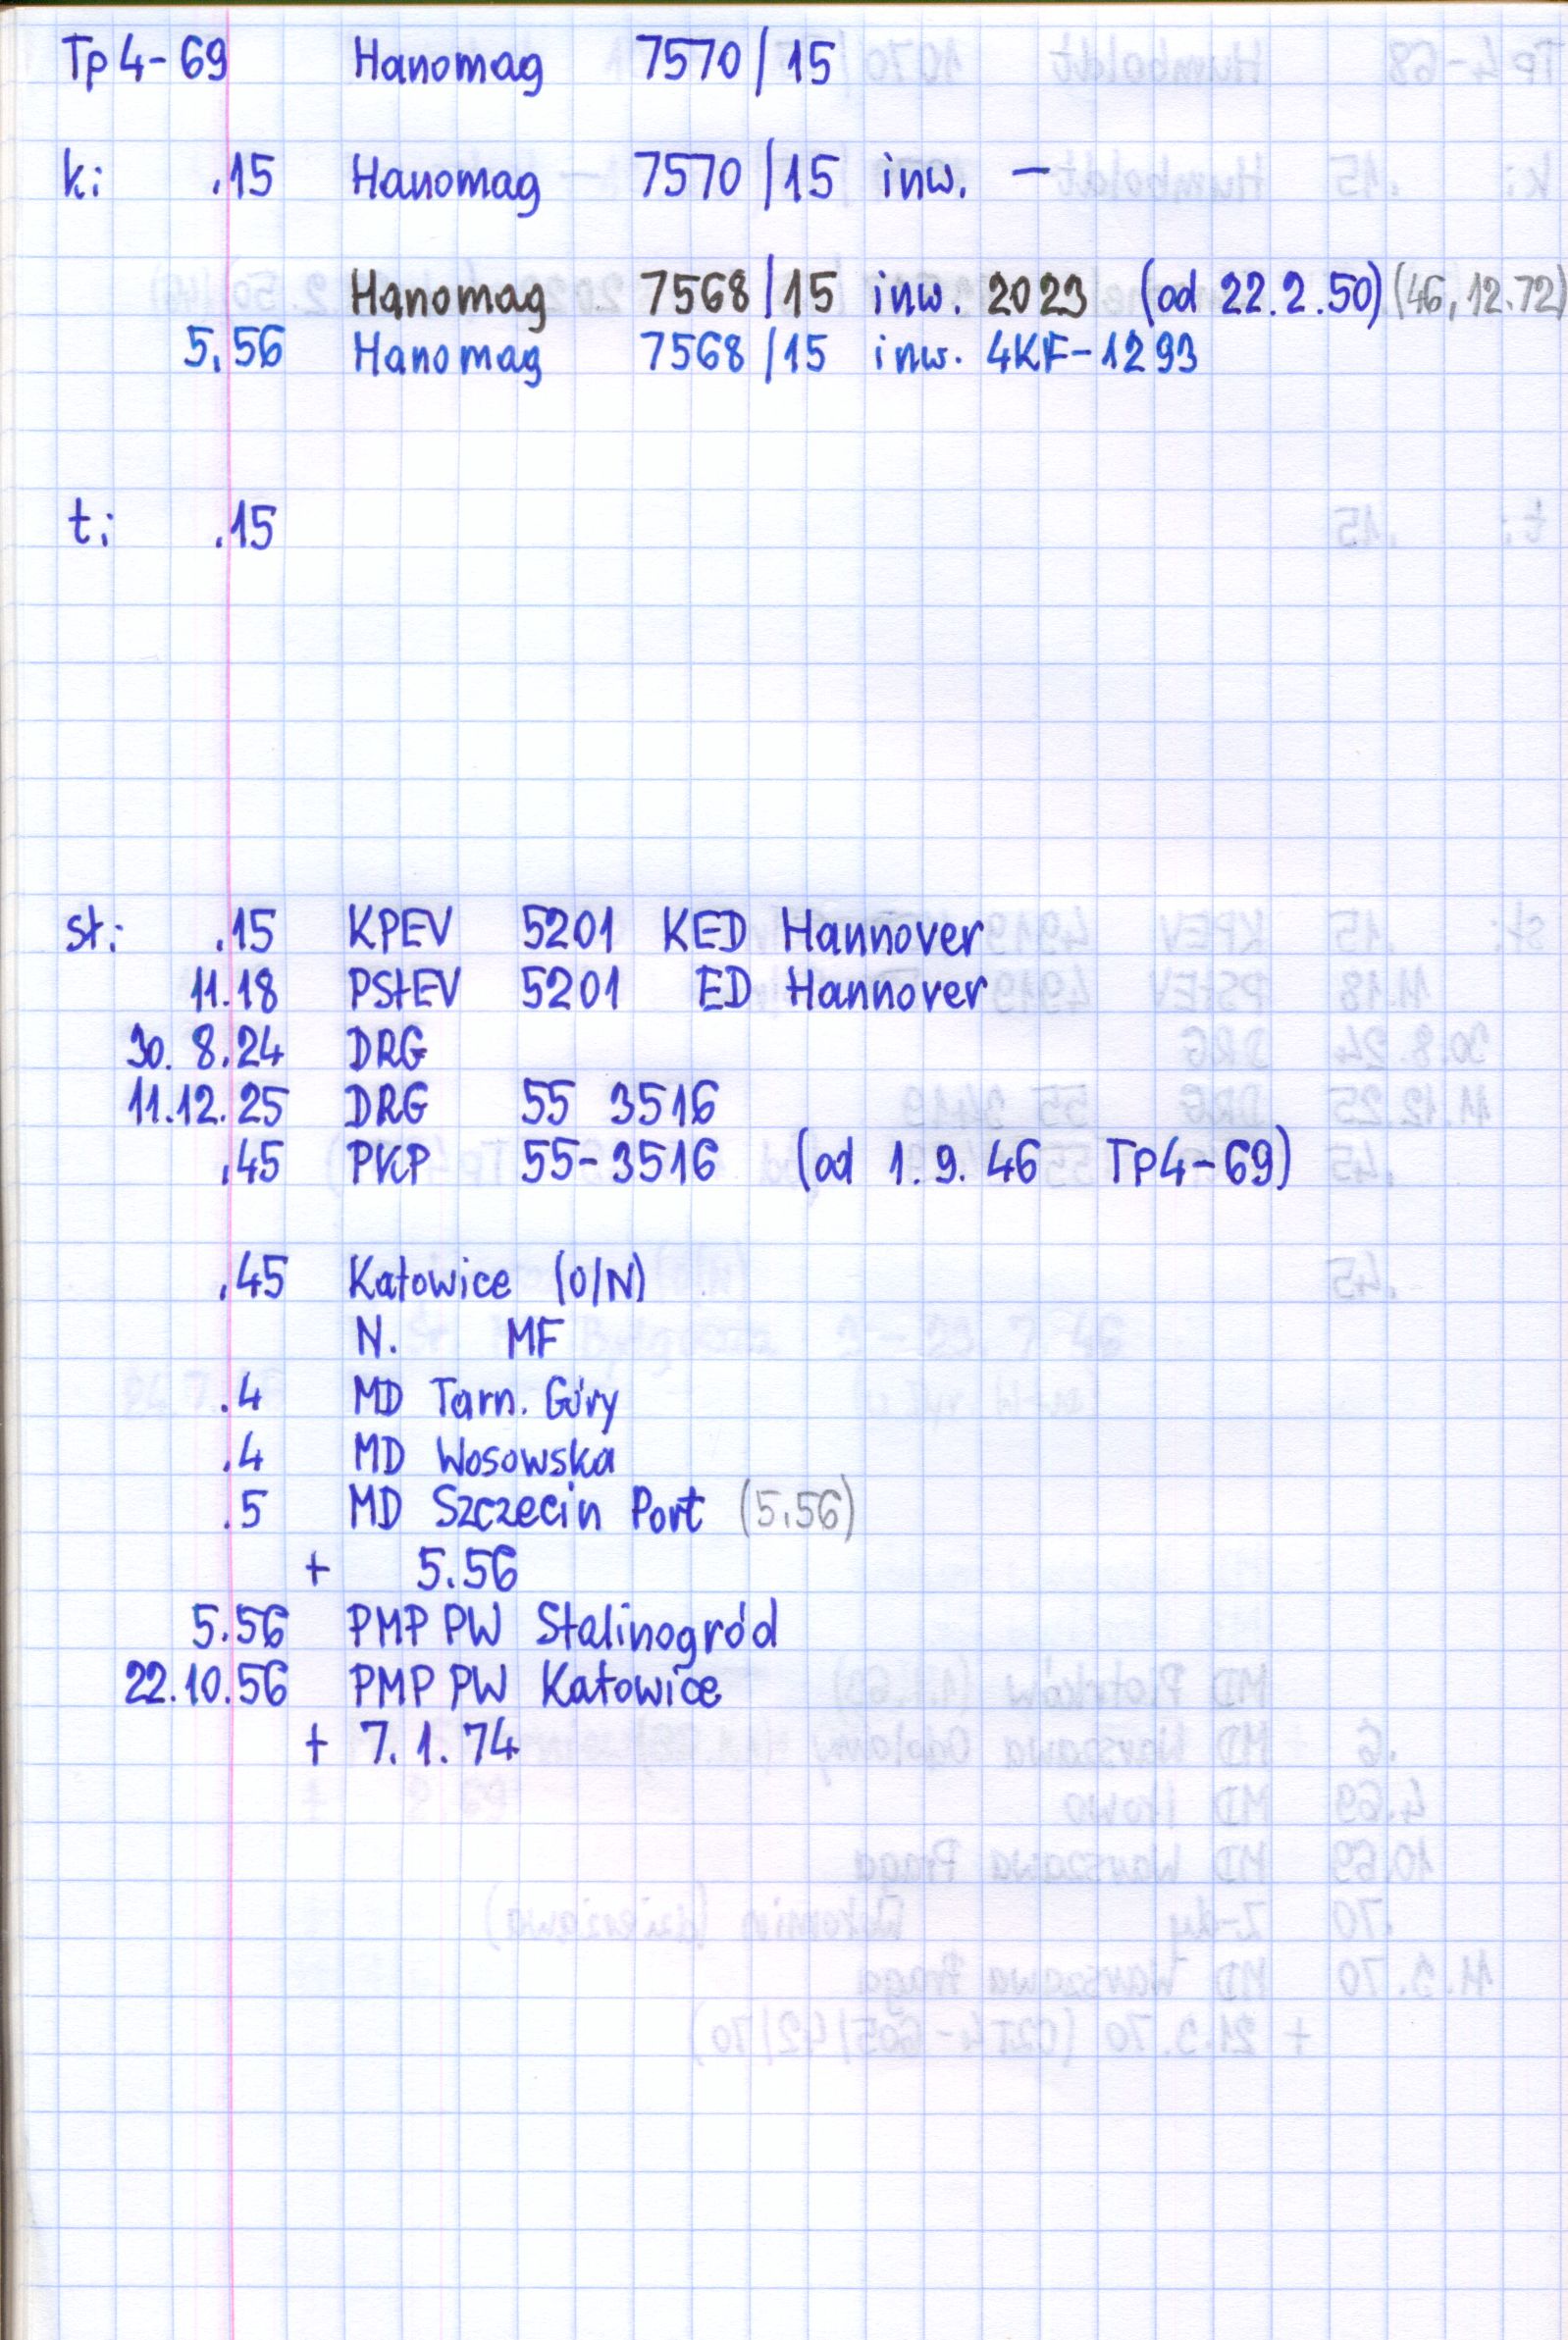 Tp4-69 Hanomag 7570/15
k: .15 Hanomag 7570/15 inw. —
Hanomag 7568/15 inw. 2023 (od 22.2.50) (46, 12.72)
5.56 Hanomag 7568/15 inw. 4KF-1293
t: .15
st: .15 KPEV 5201 KED Hannover
11.18 PStEV 5201 ED Hannover
30. 8.24 DRG
11.12.25 DRG 55 3516
.45 PKP 55-3516 (od 1.9.46 Tp4-69)
.45 Katowice (O/N)
N. MF
.4 MD Tarn. Góry
.4 MD Wosowska
.5 MD Szczecin Port (5.56)
+ 5.56
5.56 PMP PW Stalinogród
22.10.56 PMP PW Katowice
+ 7.1.74